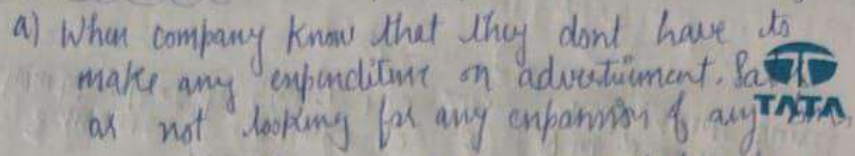 a) When company know that they dont have to
make any expenditure on advertisment.
as not looking for any expansion of any
TATA